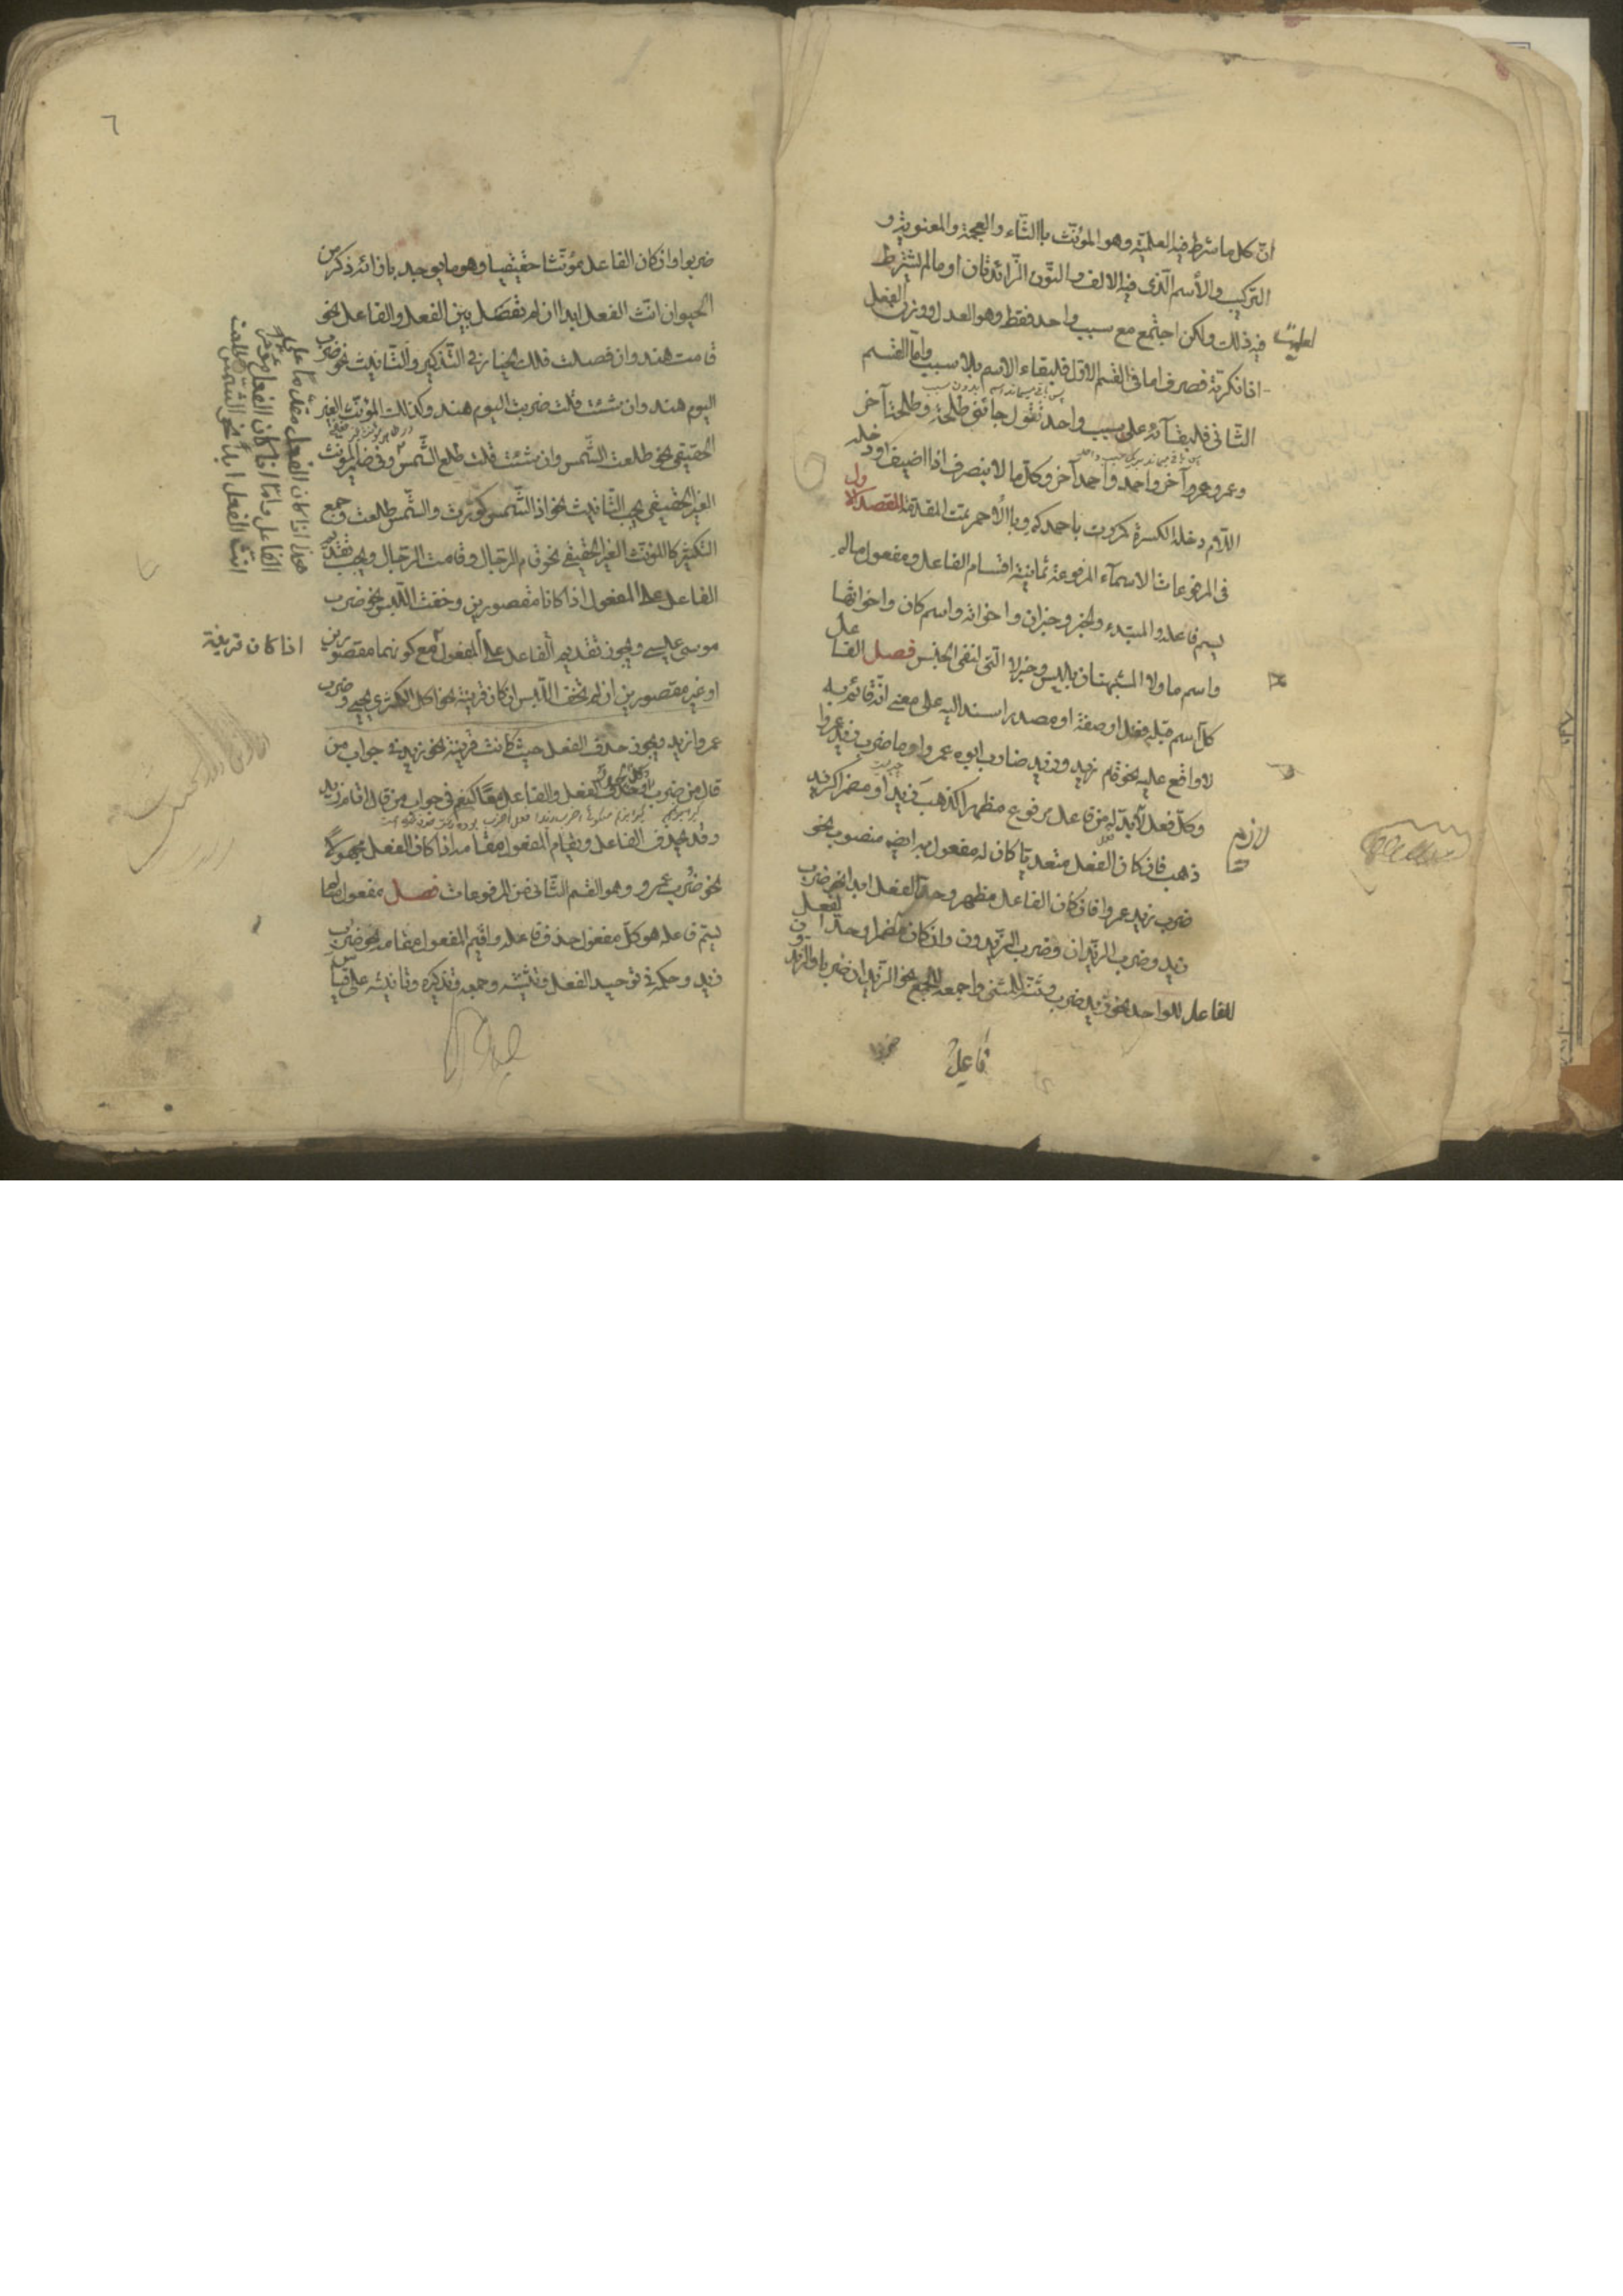 انّ كل ما شرط فيه العلميّة وهو المؤنّث باالتّاء والعجمة والمعنوية و
التركيب والأسم الّذى فيه الالف والنّون الزّائدتان او ما لم يشترط
فيه ذلك ولكن اجتمع مع سبب واحد فقط وهو العدل ووزن الفعل
اذا نكرته صرف اما فى القسم الاوّل فلبقاء الاسم بلا سبب وامّا القسم
الثّانى فلبقآئه على سبب واحد تقول جائنى طلحة وطلحة آخر
وعمر وعمر آخر واحمد واحمد آخر وكلّ ما لا ينصرف اذا اضيف او دخله
اللّام دخله الكسرة كمررت باحمدكم وباالأحمر تمت المقدمة المقصد الاول
فى المرفوعات الاسمآء المرفوعة ثمانية اقسام الفاعل ومفعول ما لم
يسم فاعله والمبتدء والخبر وخبر ان واخواته واسم كان واخواتها
واسم ما ولا المشبهتان بليس وخبر لا الّتى لنفى الجنس فصل الفاعل
كلّ اسم قبله فعل او صفة او مصدر اسند اليه على معنى انّه قائم به
لا واقع عليه نحو قام زيد وزيد ضارب ابوه عمروا وما ضرب زيد عمروا
وكلّ فعل لابدّ له من فاعل مرفوع مظهرا كذهب زيد او مضمرا كزيد
ذهب فان كان الفعل متعديا كان له مفعول به ايضا منصوب نحو
ضرب زيد عمروا فان كان الفاعل مظهر وحدّ الفعل ابدا نحو ضرب
زيد وضرب الزّيدان وضرب الزّيدون وان كان مضمرا وحد الفعل
للفاعل للواحد نحو زيد ضرب وتثنّه للمثنى واجمعه للجمع نحو الزّيدان ضربا والزيدون
لازم
فاعل
٦
ضربوا وان كان الفاعل مؤنّثا حقيقيا وهو ما يوجد بازائه ذكر من
الحيوان انّث الفعل ابدا ان لم تفصّل بين الفعل والفاعل نحو
قامت هند وان فصلت فلك الخيار فى التّذكير والتّانيث نحو ضرب
اليوم هند وان شئت قلت ضربت اليوم هند وكذلك المؤنّث الغير
الحقيقى نحو طلعت الشّمس وان شئت قلت طلع الشّمس وفى ضاير المؤنث
الغير الحقيقى يجب التّانيث نحو اذ الشّمس كوّرت والشّمس طلعت وجمع
التكثير كاالمؤنّث الغير الحقيقى نحو قام الرّجال وقامت الرّجال ويجب تقديم
الفاعل على المفعول اذا كانا مقصورين وخفت اللّبس نحو ضرب
موسى عيسى ويجوز تقديم الفاعل على المفعول مع كونهما مقصورين
او غير مقصورين ان لم تخف اللّبس ان كان قرينة نحو اكل الكمثرى يحيى وضرب
عمروا زيد ويجوز حذف الفعل حيث كانت قرينة نحو زيد فى جواب من
قال من ضرب وكذلك يجوز حذف الفعل والفاعل معًا كنعم فى جواب من قال اقام زيد
وقد يحذف الفاعل ويقام المفعول مقامه اذا كان الفعل مجهولا
نحو ضُرب عمرو وهو القسم الثّانى من المرفوعات فصل مفعول ما لم
يسّم فاعله هو كلّ مفعول حذف فاعله واقيم المفعول مقامه نحو ضرب
زيد وحكمه فى توحيد الفعل وتثنيته وجمعه وتذكيره وتأنيثه على قياس
هذا اذا كان الفعل مقدّمًا على
الفاعل وامّا اذا كان الفعل مؤخّر
انّث الفعل ابدًا نحو الشّمس طلعت
اذا كان قرينة